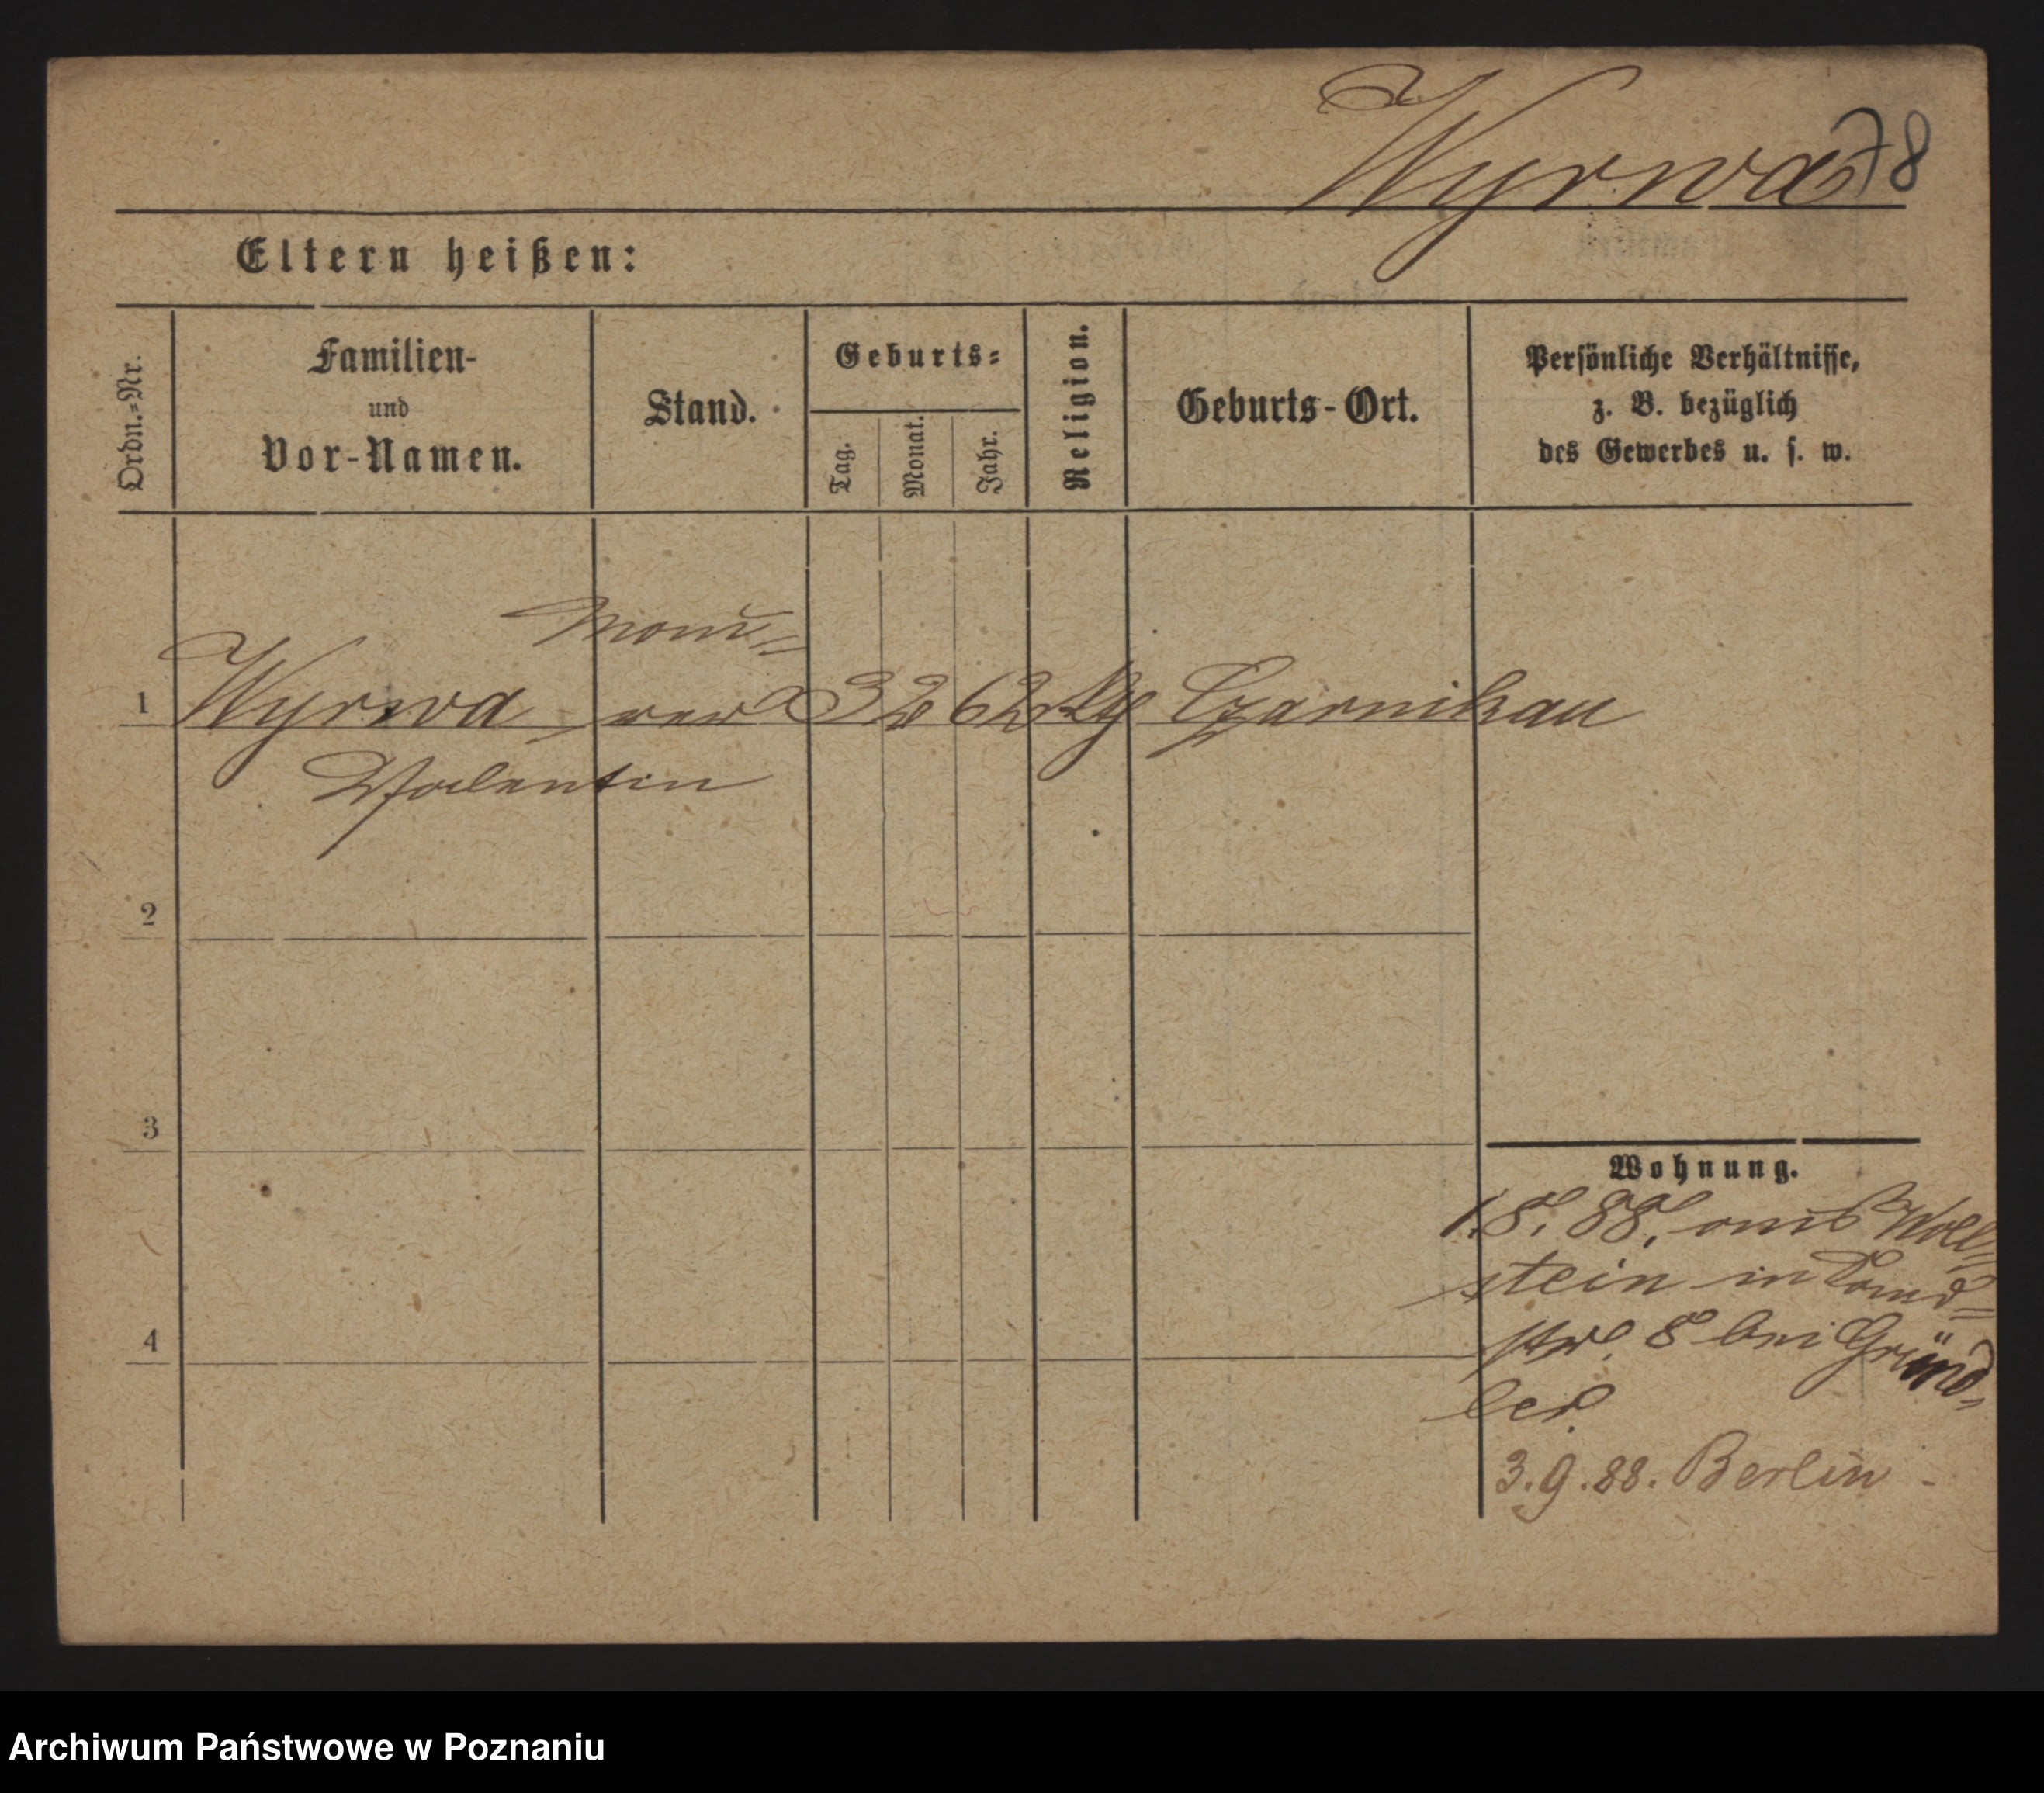 Wyrwa
78
Eltern heißen:
Ordn.=Nr.
Familien-
und
Vor-Namen.
Stand.
Geburts=
Tag.
Monat.
Jahr.
Religion.
Geburts-Ort.
Persönliche Verhältnisse,
z. B. bezüglich
des Gewerbes u. s. w.
Mau=
1 Wyrwa, rer 3 2 62 Czarnikau
Valentin
2
3
4
Wohnung.
1.8. 88. aus Woll=
stein in
str. 8 bei Gründ=
ler.
3.9.88. Berlin -
Archiwum Państwowe w Poznaniu